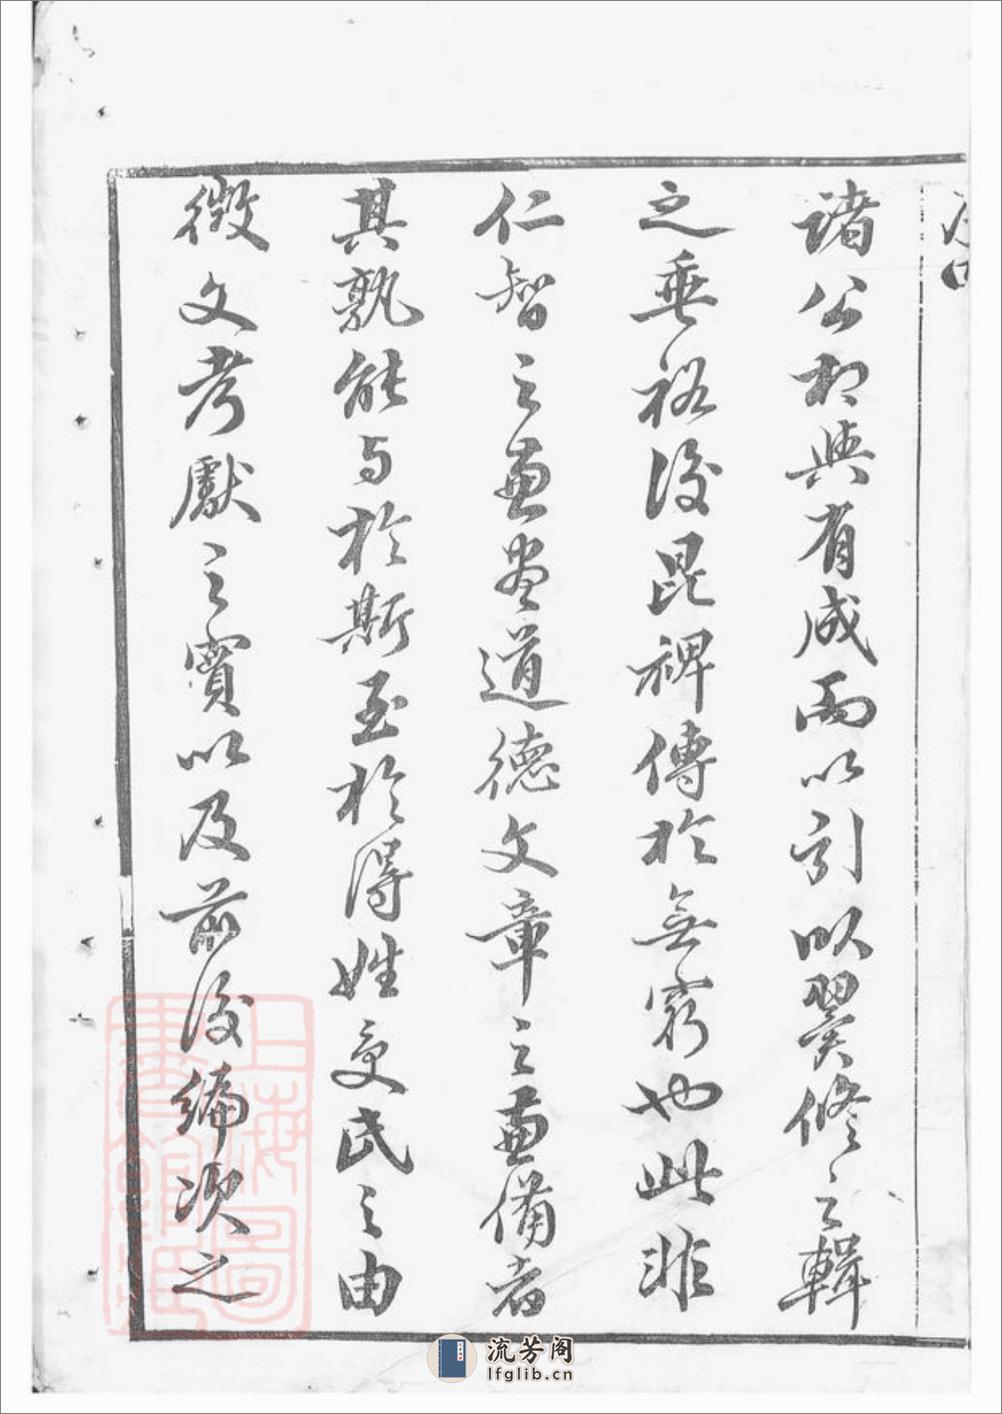 諸公相與有成而以引以翼修之輯
之垂裕後昆裨傳於無窮也此非
仁智之兼盡道德文章之兼備者
其孰能与於斯至於得姓受氏之由
徵文考獻之實以及前後編次之
上海圖書館藏
流芳阁
lfglib.cn